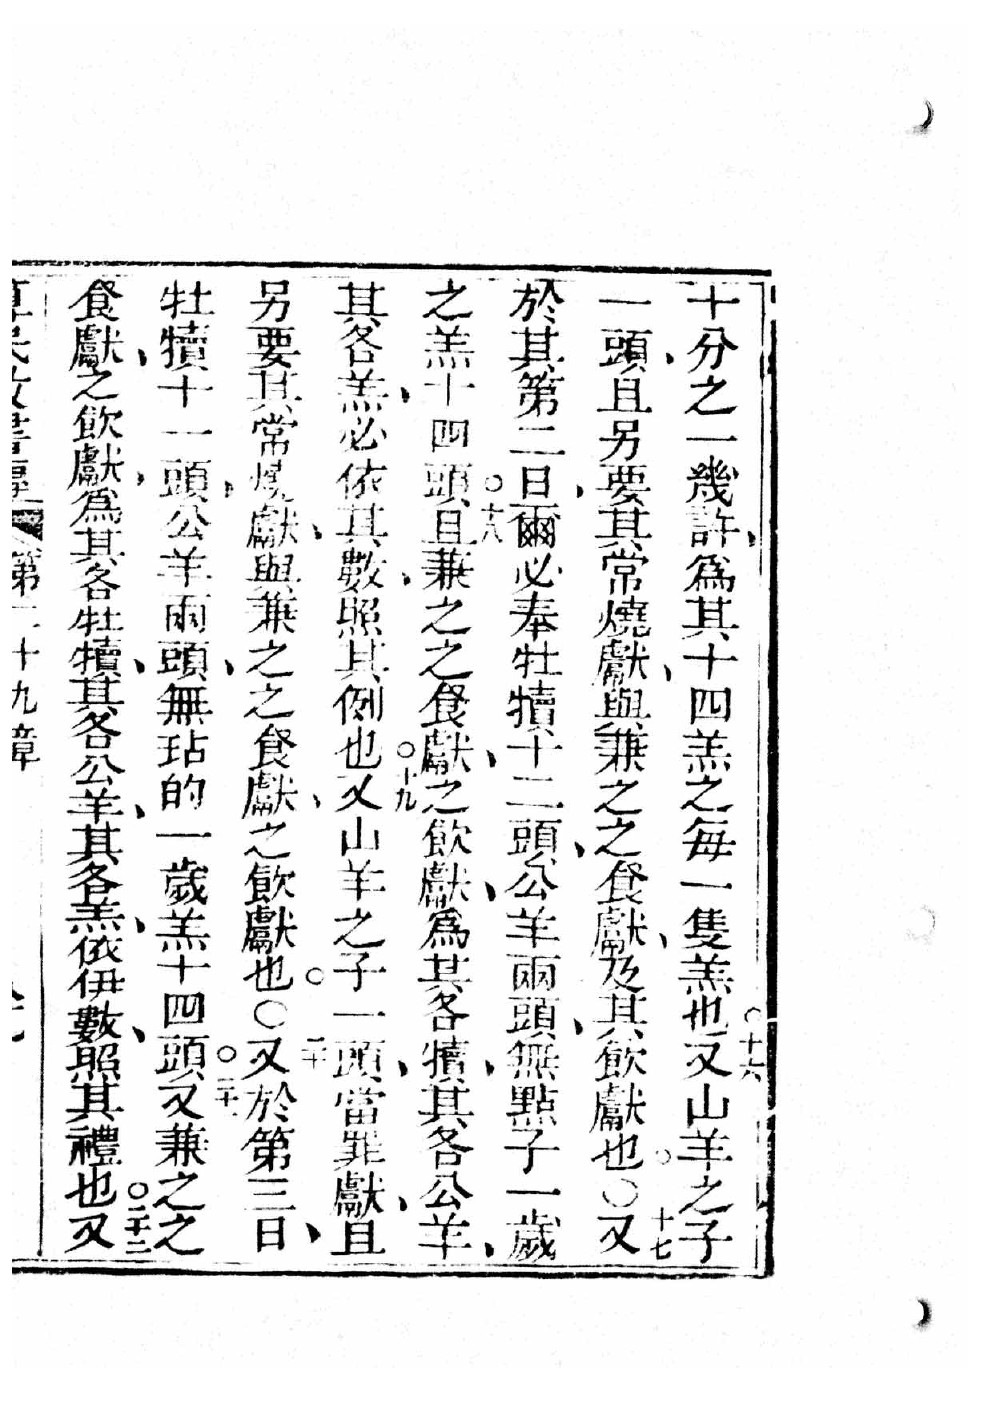 十分之一幾許、為其十四羔之每一隻羔也。十六又山羊之子
一頭、且另要其常燒獻、與兼之之食獻、及其飲獻也。○十七又
於其第二日、爾必奉牡犢十二頭、公羊兩頭、無點子一歲
之羔十四頭。十八且兼之之食獻、之飲獻、為其各犢、其各公羊、
其各羔、必依其數、照其例也。十九又山羊之子一頭、當罪獻、且
另要其常燒獻、與兼之之食獻、之飲獻也。○二十又於第三日、
牡犢十一頭、公羊兩頭、無玷的一歲羔十四頭。二十一又兼之之
食獻、之飲獻、為其各牡犢、其各公羊、其各羔、依伊數、照其禮也。二十二又
第二十九章